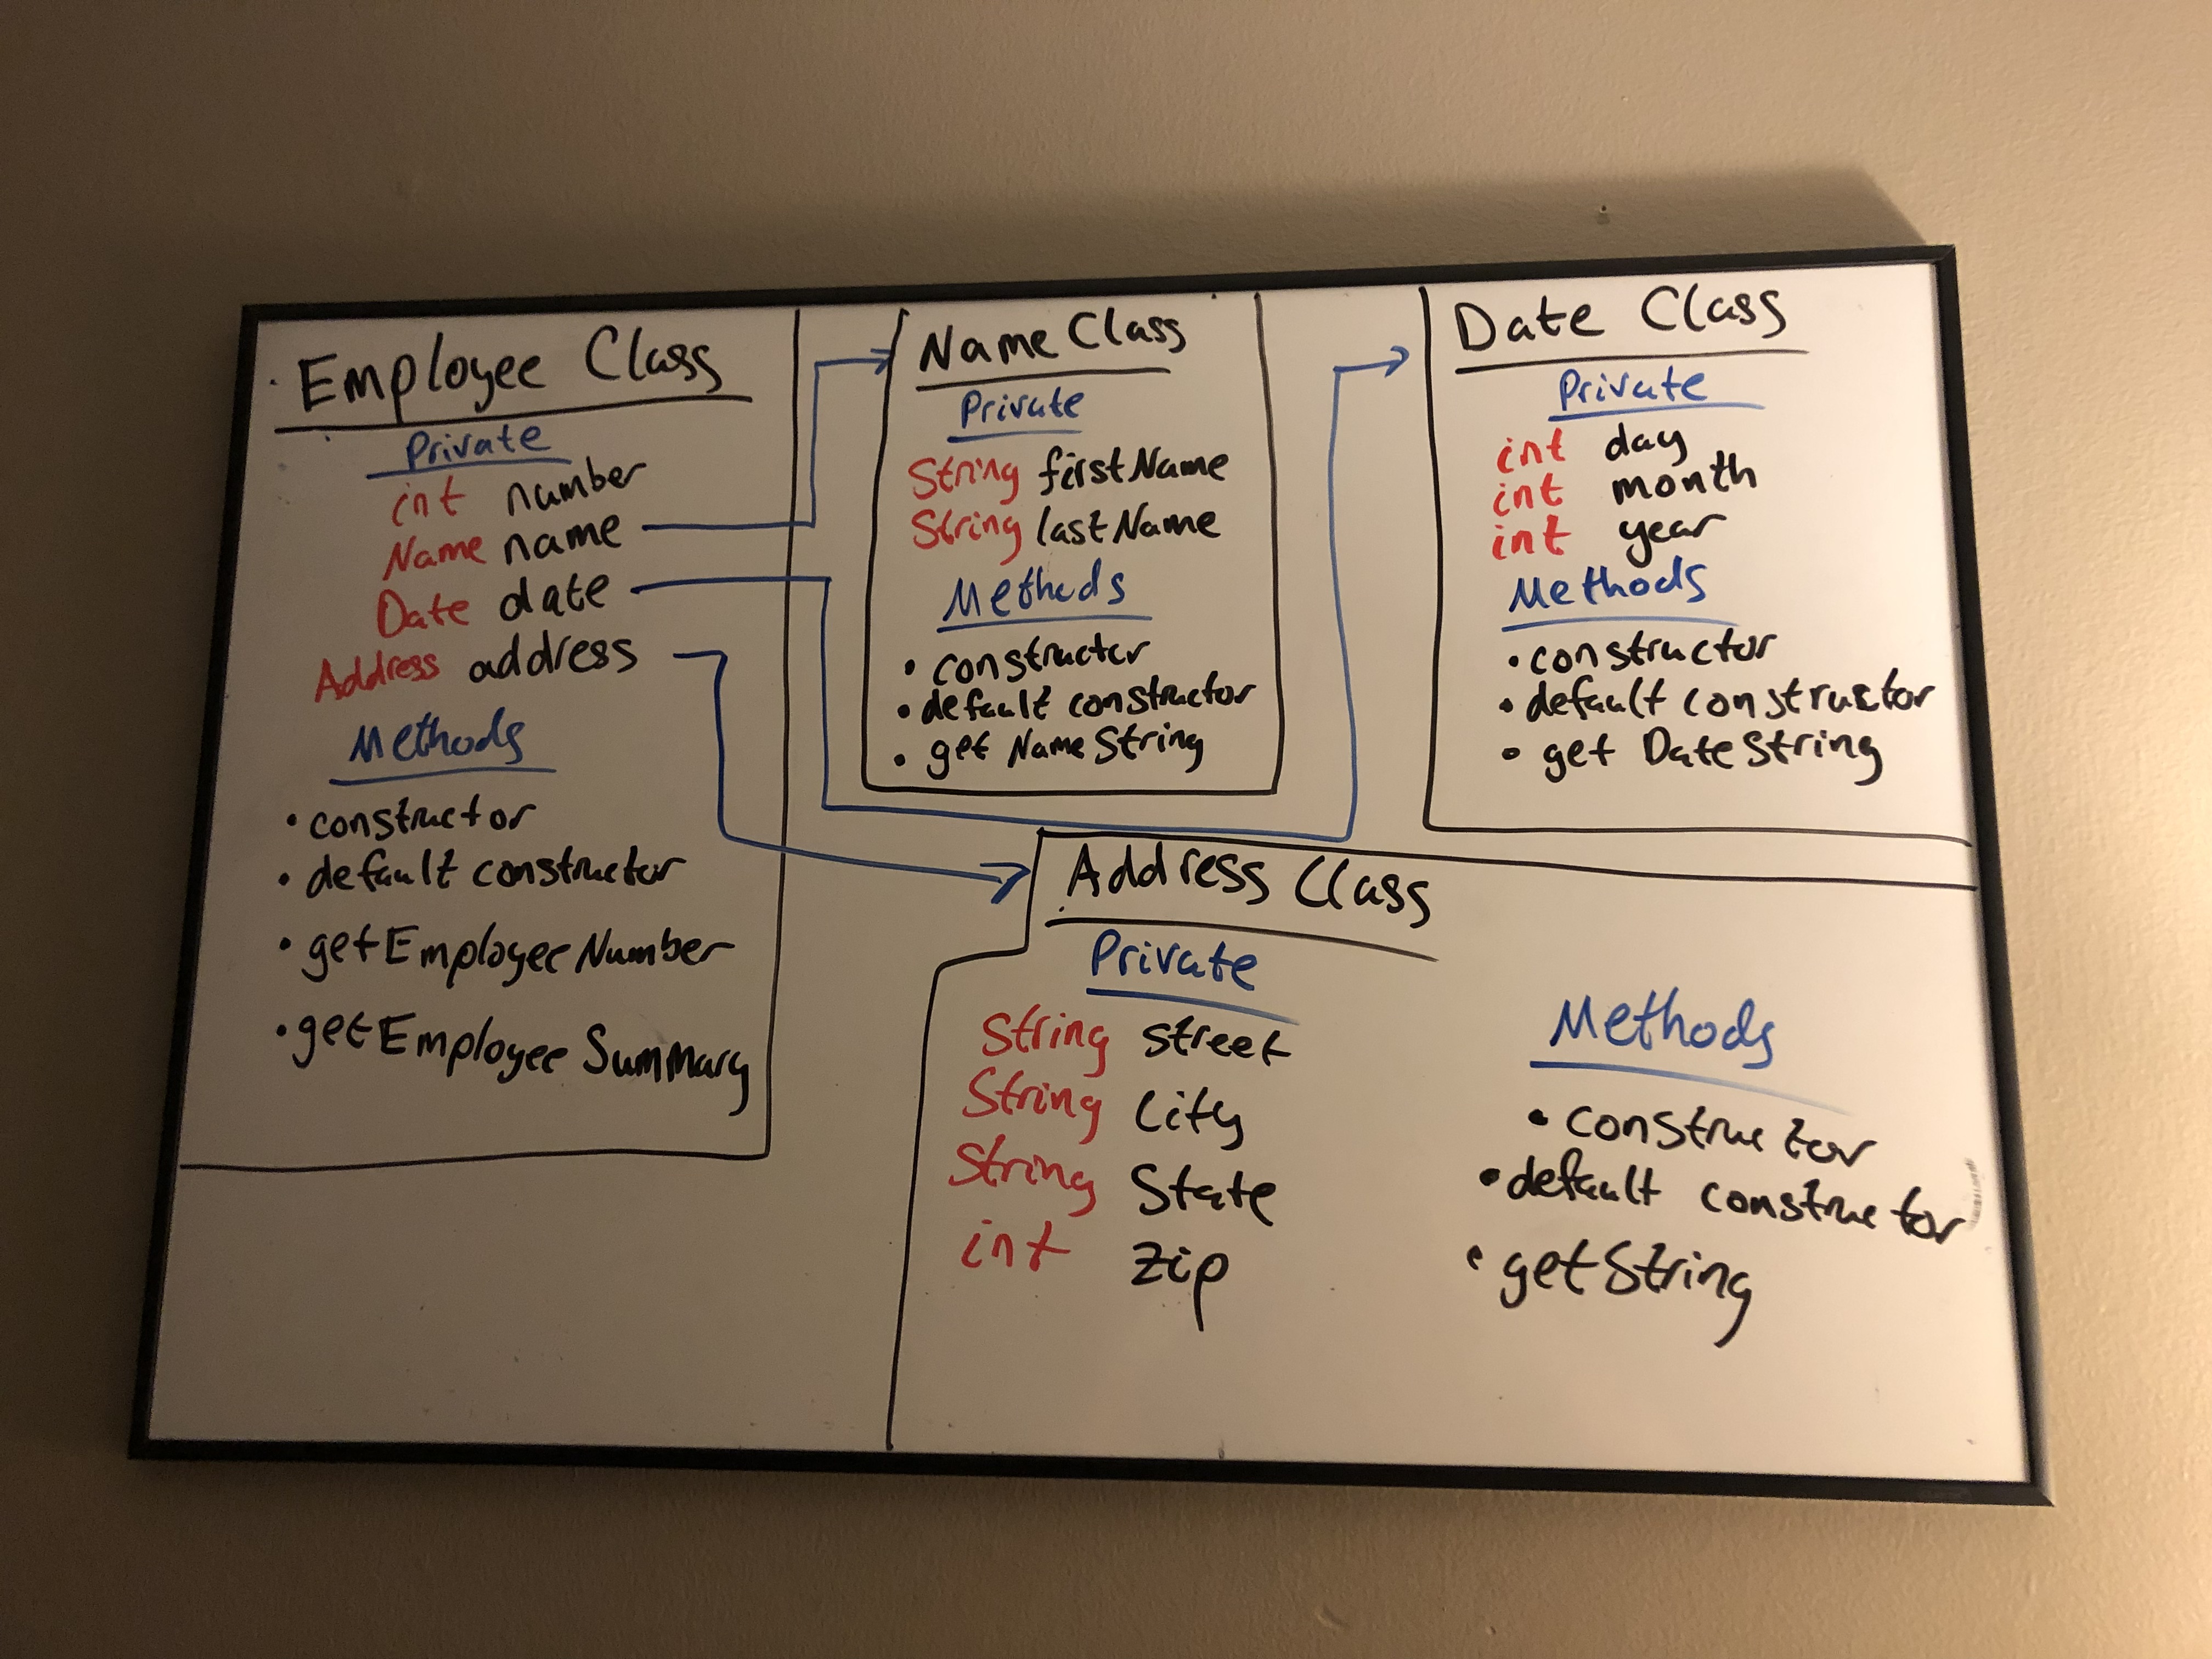 Employee Class
Private
int number
Name name
Date date
Address address
Methods
• constructor
• default constructor
• getEmployeeNumber
• getEmployee Summary
Name Class
Private
String firstName
String lastName
Methods
• constructor
• default constructor
• get NameString
Date Class
Private
int day
int month
int year
Methods
• constructor
• default constructor
• get DateString
Address Class
Private
String street
String City
String State
int Zip
Methods
• constructor
• default constructor
• getString